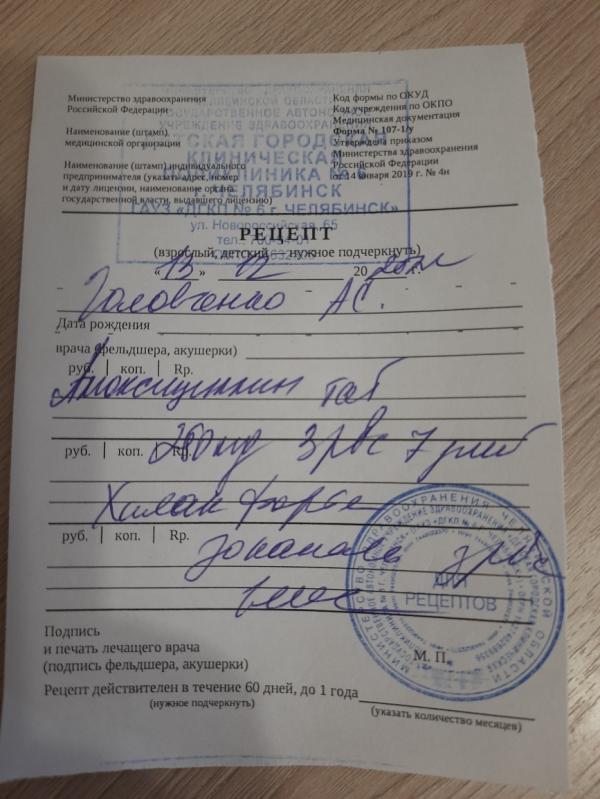 Министерство здравоохранения
Российской Федерации
Наименование (штамп)
медицинской организации
Наименование (штамп) индивидуального
предпринимателя (указать адрес, номер
и дату лицензии, наименование органа
государственной власти, выдавшего лицензию)
Код формы по ОКУД
Код учреждения по ОКПО
Медицинская документация
Форма № 107-1/у
Утверждена приказом
Министерства здравоохранения
Российской Федерации
от 14 января 2019 г. № 4н
ЧЕЛЯБИНСКОЙ ОБЛАСТИ
ГОСУДАРСТВЕННОЕ АВТОНОМНОЕ
УЧРЕЖДЕНИЕ ЗДРАВООХРАНЕНИЯ
ДЕТСКАЯ ГОРОДСКАЯ
КЛИНИЧЕСКАЯ
ПОЛИКЛИНИКА № 6
г. ЧЕЛЯБИНСК
ГАУЗ «ДГКП № 6 г. ЧЕЛЯБИНСК»
ул. Новороссийская, 65
РЕЦЕПТ
(взрослый, детский — нужное подчеркнуть)
« 13 » 02 20 г.
Головченко АС.
Дата рождения
врача (фельдшера, акушерки)
руб. | коп. | Rp.
Амоксициллин таб
руб. | коп. | Rp. 250 мг 3 р в с 7 дней
Хилак форте
руб. | коп. | Rp.
капель 3 р в с
Подпись
и печать лечащего врача
(подпись фельдшера, акушерки)
М. П.
ДЛЯ
РЕЦЕПТОВ
Рецепт действителен в течение 60 дней, до 1 года
(нужное подчеркнуть)
(указать количество месяцев)